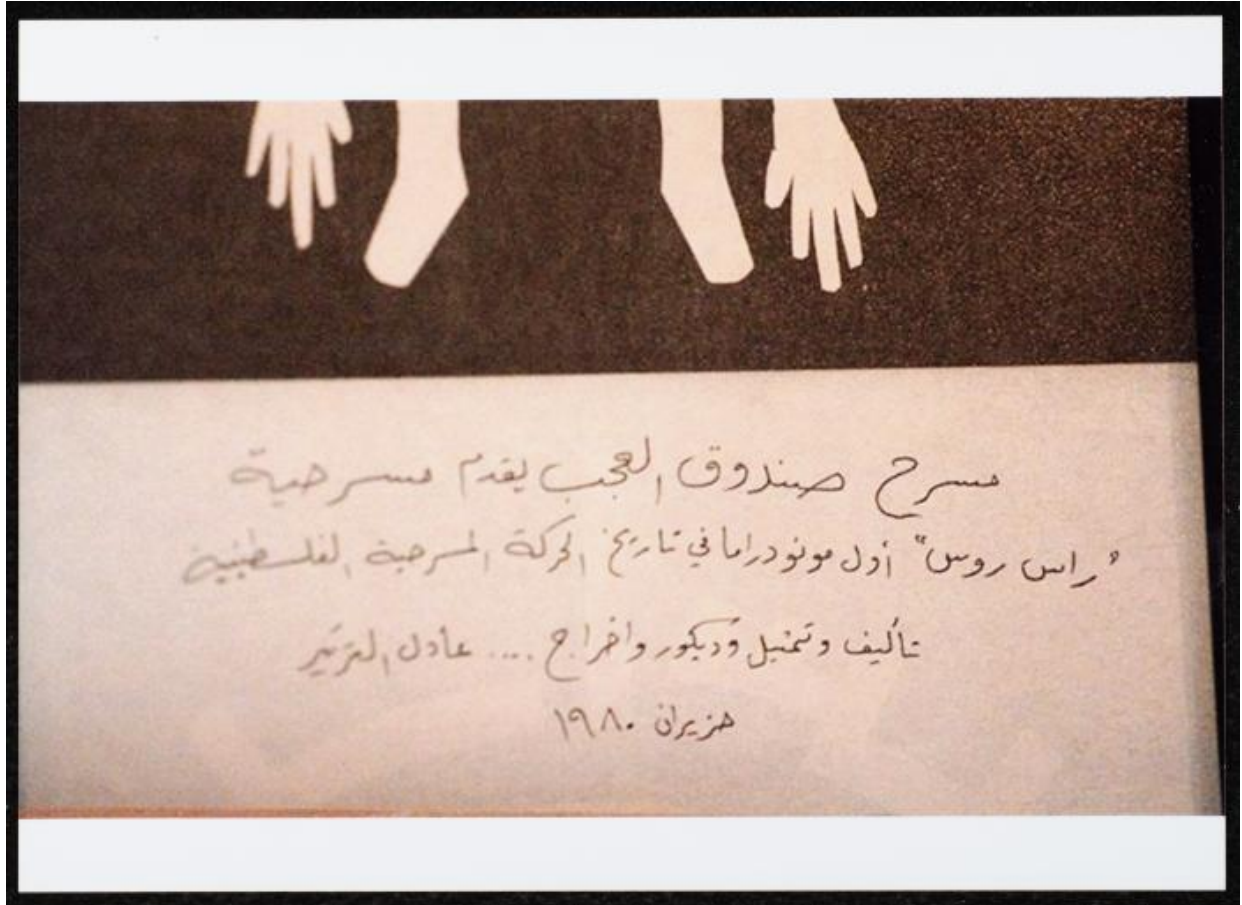 مسرح صندوق العجب يقدم مسرحية
"راس روس" أول مونودراما في تاريخ الحركة المسرحية الفلسطينية
تأليف وتمثيل وديكور واخراج .... عادل الترتير
حزيران ١٩٨٠